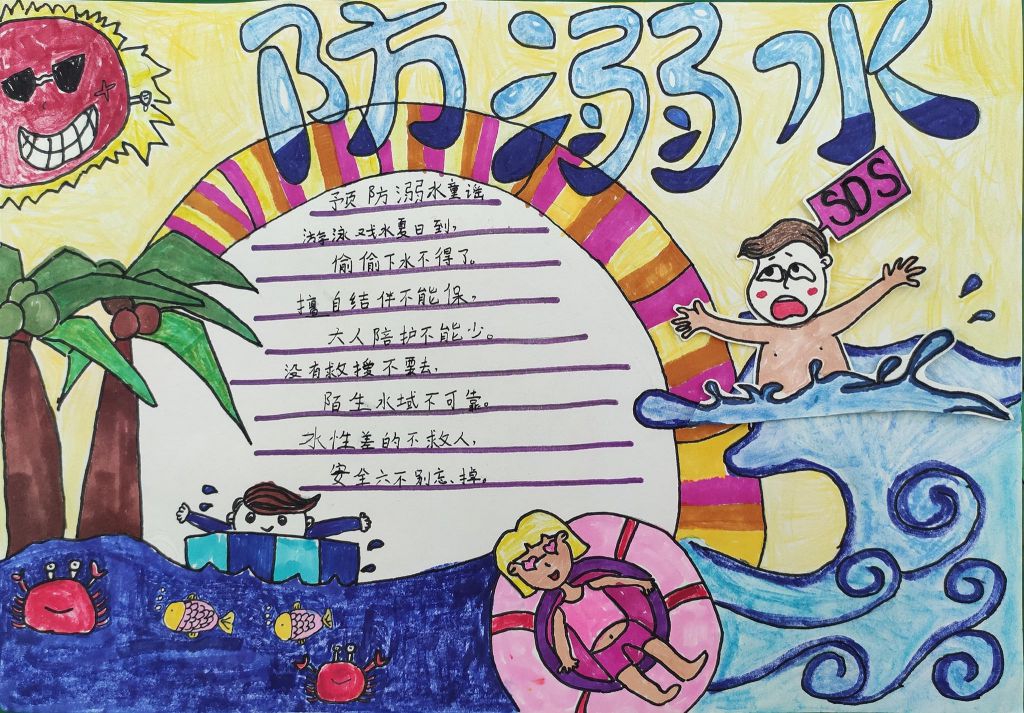 防溺水
SDS
预防溺水童谣
游泳戏水夏日到，
偷偷下水不得了。
擅自结伴不能保，
大人陪护不能少。
没有救援不要去，
陌生水域不可靠。
水性差的不救人，
安全六不别忘掉。